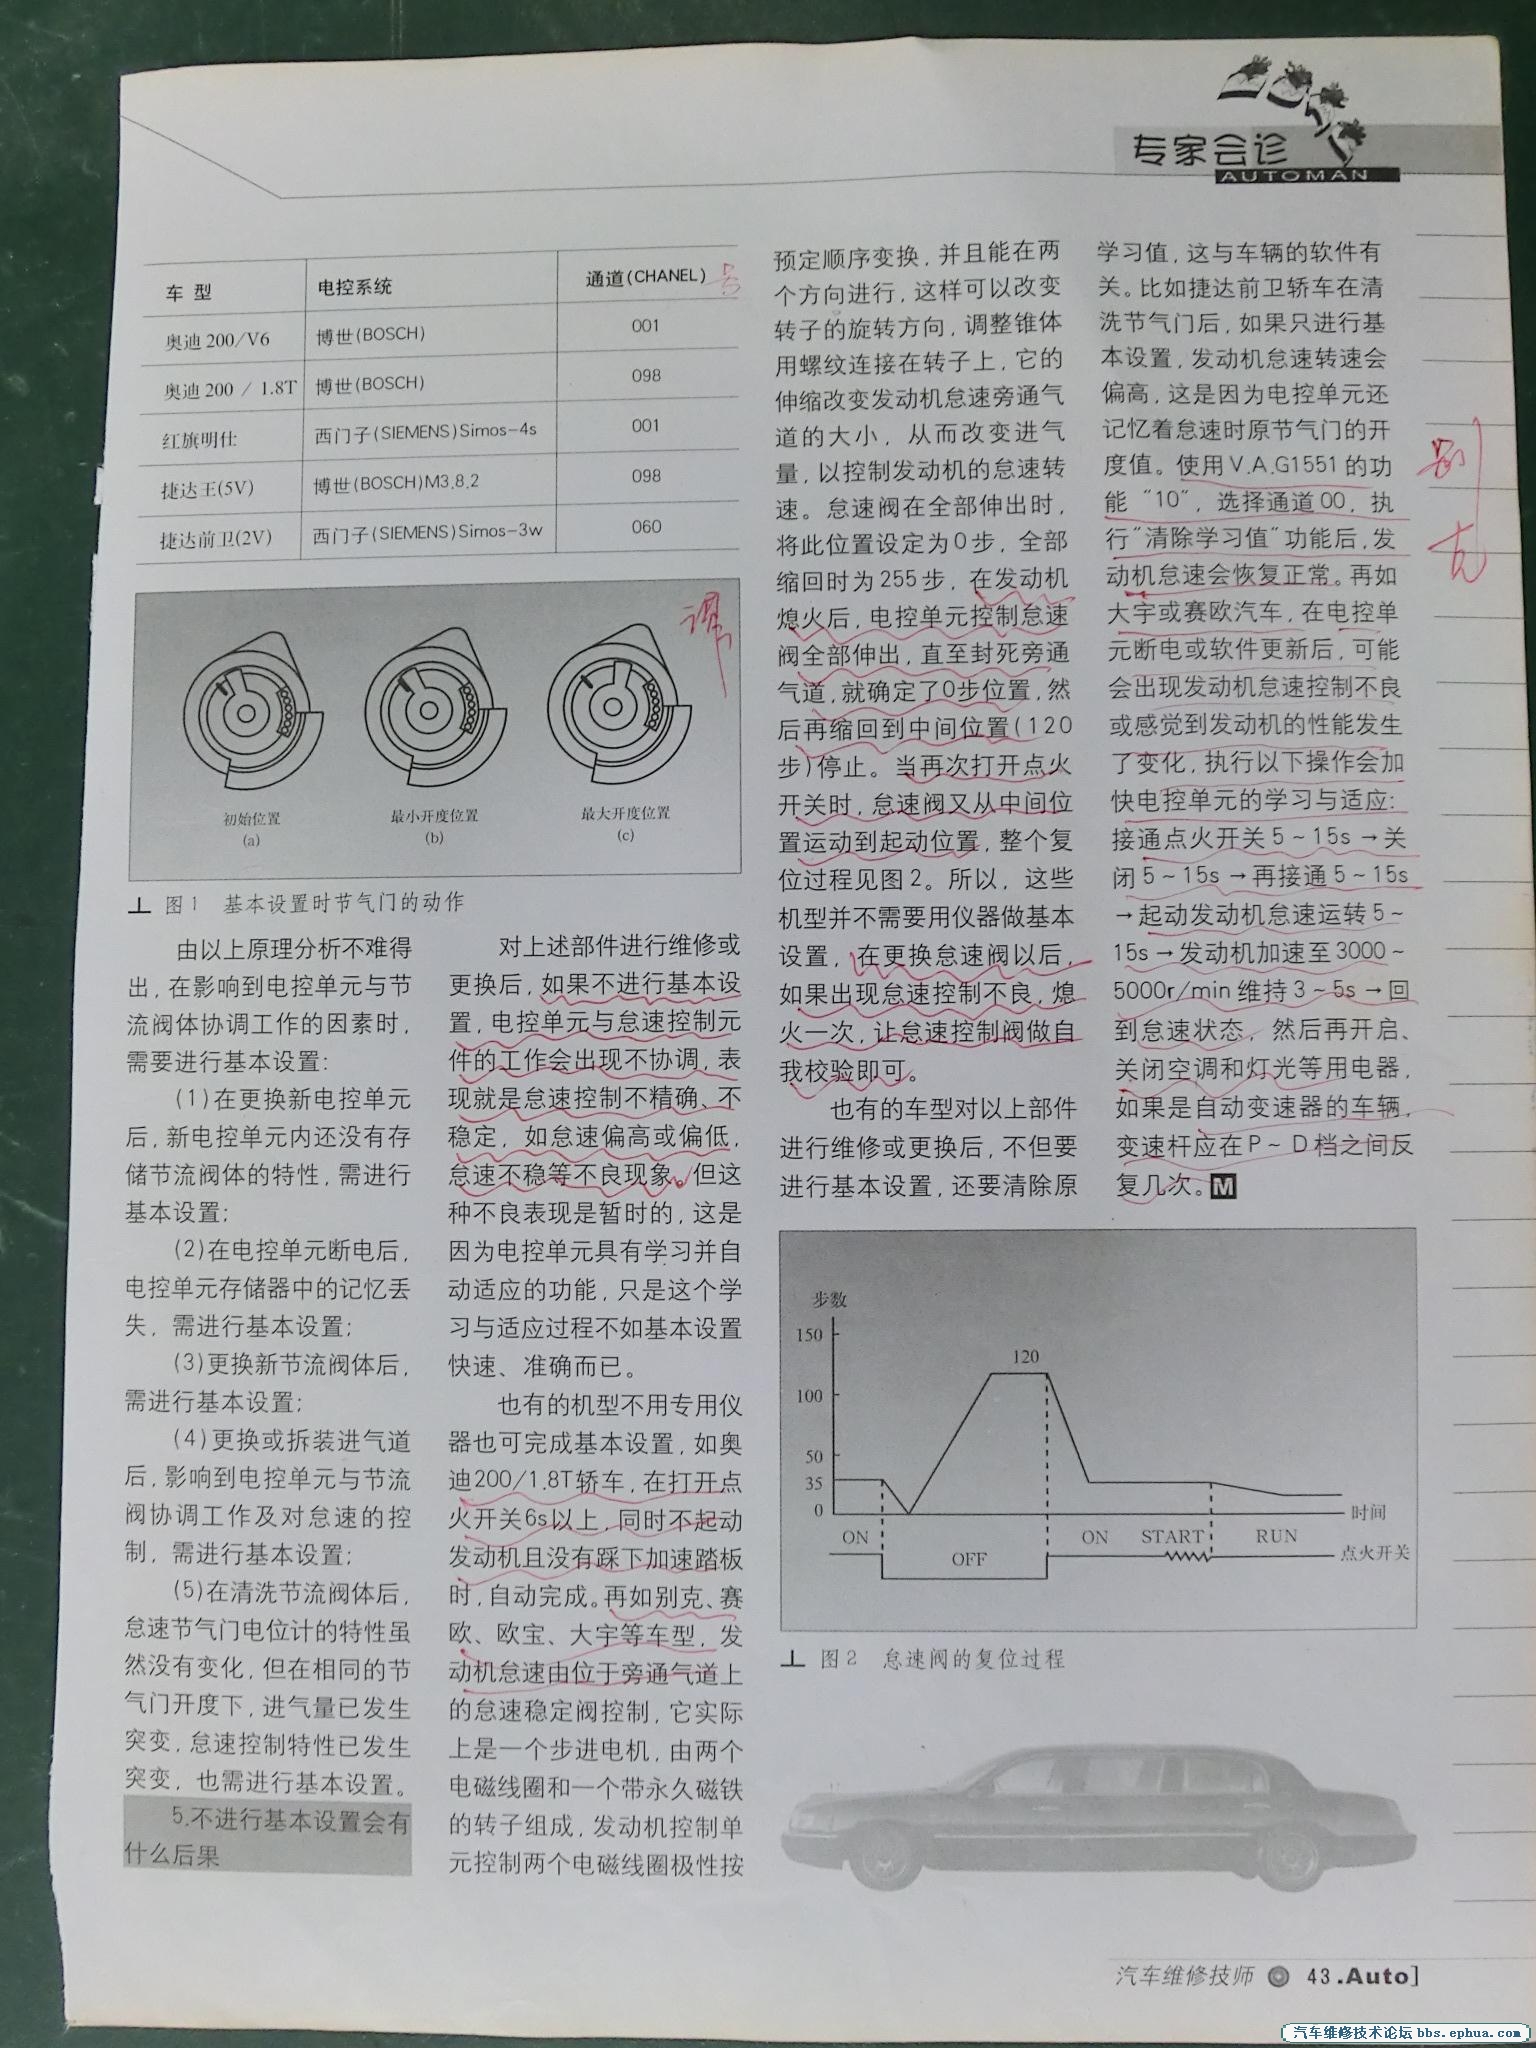 专家会诊
AUTOMAN
车 型 电控系统 通道(CHANEL) 号
奥迪 200/V6 博世(BOSCH) 001
奥迪 200 / 1.8T 博世(BOSCH) 098
红旗明仕 西门子(SIEMENS)Simos-4s 001
捷达王(5V) 博世(BOSCH)M3.8.2 098
捷达前卫(2V) 西门子(SIEMENS)Simos-3w 060
初始位置 最小开度位置 最大开度位置
(a) (b) (c)
图1 基本设置时节气门的动作
由以上原理分析不难得
出，在影响到电控单元与节
流阀体协调工作的因素时，
需要进行基本设置：
(1)在更换新电控单元
后，新电控单元内还没有存
储节流阀体的特性，需进行
基本设置；
(2)在电控单元断电后，
电控单元存储器中的记忆丢
失，需进行基本设置；
(3)更换新节流阀体后，
需进行基本设置；
(4)更换或拆装进气道
后，影响到电控单元与节流
阀协调工作及对怠速的控
制，需进行基本设置；
(5)在清洗节流阀体后，
怠速节气门电位计的特性虽
然没有变化，但在相同的节
气门开度下，进气量已发生
突变，怠速控制特性已发生
突变，也需进行基本设置。
5.不进行基本设置会有
什么后果
对上述部件进行维修或
更换后，如果不进行基本设
置，电控单元与怠速控制元
件的工作会出现不协调，表
现就是怠速控制不精确、不
稳定，如怠速偏高或偏低，
怠速不稳等不良现象。但这
种不良表现是暂时的，这是
因为电控单元具有学习并自
动适应的功能，只是这个学
习与适应过程不如基本设置
快速、准确而已。
也有的机型不用专用仪
器也可完成基本设置，如奥
迪200/1.8T轿车，在打开点
火开关6s以上，同时不起动
发动机且没有踩下加速踏板
时，自动完成。再如别克、赛
欧、欧宝、大宇等车型，发
动机怠速由位于旁通气道上
的怠速稳定阀控制，它实际
上是一个步进电机，由两个
电磁线圈和一个带永久磁铁
的转子组成，发动机控制单
元控制两个电磁线圈极性按
预定顺序变换，并且能在两
个方向进行，这样可以改变
转子的旋转方向，调整锥体
用螺纹连接在转子上，它的
伸缩改变发动机怠速旁通气
道的大小，从而改变进气
量，以控制发动机的怠速转
速。怠速阀在全部伸出时，
将此位置设定为0步，全部
缩回时为255步，在发动机
熄火后，电控单元控制怠速
阀全部伸出，直至封死旁通
气道，就确定了0步位置，然
后再缩回到中间位置(120
步)停止。当再次打开点火
开关时，怠速阀又从中间位
置运动到起动位置，整个复
位过程见图2。所以，这些
机型并不需要用仪器做基本
设置，在更换怠速阀以后，
如果出现怠速控制不良，熄
火一次，让怠速控制阀做自
我校验即可。
也有的车型对以上部件
进行维修或更换后，不但要
进行基本设置，还要清除原
学习值，这与车辆的软件有
关。比如捷达前卫轿车在清
洗节气门后，如果只进行基
本设置，发动机怠速转速会
偏高，这是因为电控单元还
记忆着怠速时原节气门的开
度值。使用V.A.G1551的功
能“10”，选择通道00，执
行“清除学习值”功能后，发
动机怠速会恢复正常。再如
大宇或赛欧汽车，在电控单
元断电或软件更新后，可能
会出现发动机怠速控制不良
或感觉到发动机的性能发生
了变化，执行以下操作会加
快电控单元的学习与适应：
接通点火开关5～15s→关
闭5～15s→再接通5～15s
→起动发动机怠速运转5～
15s→发动机加速至3000～
5000r/min维持3～5s→回
到怠速状态，然后再开启、
关闭空调和灯光等用电器，
如果是自动变速器的车辆，
变速杆应在P～D档之间反
复几次。M
别
克
步数
150
120
100
50
35
0
时间
ON OFF ON START RUN
点火开关
图2 怠速阀的复位过程
汽车维修技师 43.Auto]
汽车维修技术论坛 bbs.ephua.com